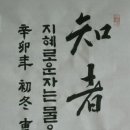 知者
지혜로운자는물
辛卯年 初冬